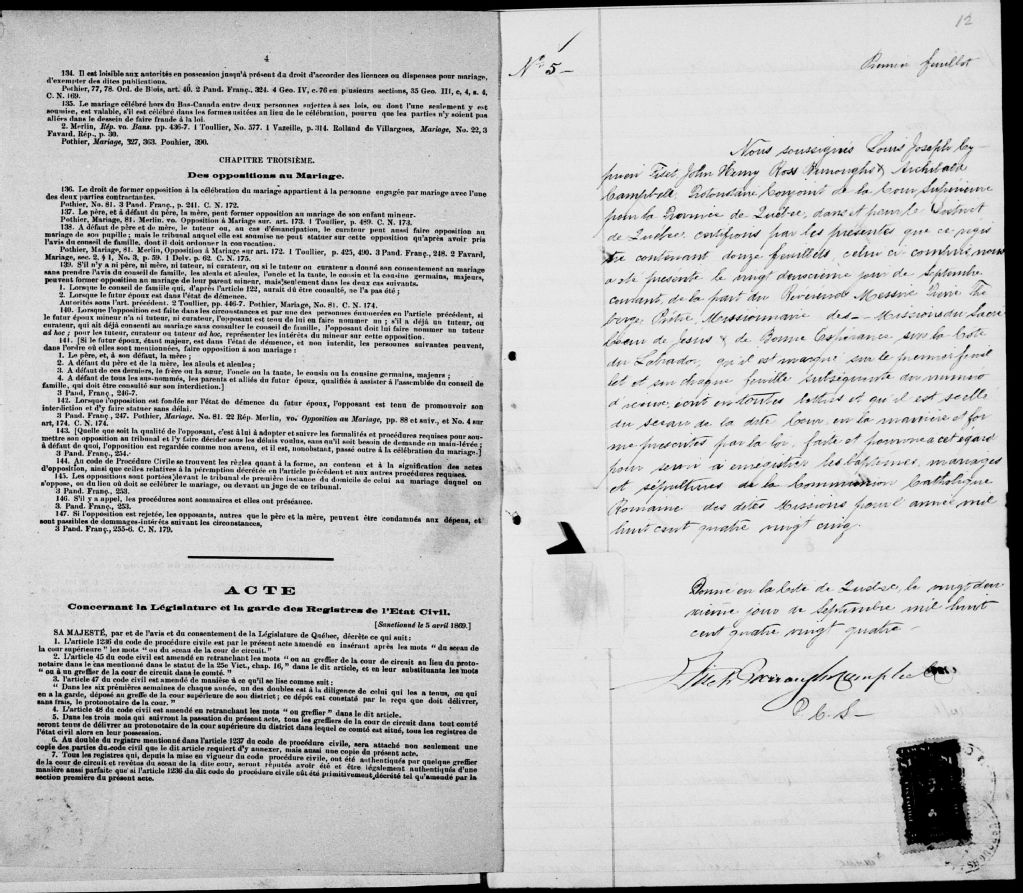 4
134. Il est loisible aux autorités en possession jusqu'à présent du droit d'accorder des licences ou dispenses pour mariage,
d'exempter des dites publications.
Pothier, 77, 78. Ord. de Blois, art. 40. 2 Pand. Franç., 324. 4 Geo. IV, c. 76 en plusieurs sections, 35 Geo. III, c, 4, s. 4,
C. N. 169.
135. Le mariage célébré hors du Bas-Canada entre deux personnes sujettes à ses lois, ou dont l'une seulement y est
soumise, est valable, s'il est célébré dans les formes usitées au lieu de la célébration, pourvu que les parties n'y soient pas
allées dans le dessein de faire fraude à la loi.
2. Merlin, Rép. vo. Bans. pp. 436-7. 1 Toullier, No. 577. 1 Vazeille, p. 314. Rolland de Villargues, Mariage, No. 22, 3
Favard. Rép., p. 30.
Pothier, Mariage, 327, 363. Pouhier, 390.
CHAPITRE TROISIÈME.
Des oppositions au Mariage.
136. Le droit de former opposition à la célébration du mariage appartient à la personne engagée par mariage avec l'une
des deux parties contractantes.
Pothier, No. 81. 3 Pand. Franç., p. 241. C. N. 172.
137. Le père, et à défaut du père, la mère, peut former opposition au mariage de son enfant mineur.
Pothier, Mariage, 81. Merlin. vo. Opposition à Mariage sur. art. 173. 1 Toullier, p. 489. C. N. 173.
138. A défaut de père et de mère, le tuteur ou, au cas d'émancipation, le curateur peut aussi faire opposition au
mariage de son pupille; mais le tribunal auquel elle est soumise ne peut statuer sur cette opposition qu'après avoir pris
l'avis du conseil de famille, dont il doit ordonner la convocation.
Pothier, Mariage, 81. Merlin, Opposition à Mariage sur art. 172. 1 Toullier, p. 425, 490. 3 Pand. Franç., 248. 2 Favard,
Mariage, sec. 2. § 1, No. 3, p. 59. 1 Delv. p. 62. C. N. 175.
139. S'il n'y a ni père, ni mère, ni tuteur, ni curateur, ou si le tuteur ou curateur a donné son consentement au mariage
sans prendre l'avis du conseil de famille, les aïeuls et aïeules, l'oncle et la tante, le cousin et la cousine germains, majeurs,
peuvent former opposition au mariage de leur parent mineur, mais seulement dans les deux cas suivants.
1. Lorsque le conseil de famille qui, d'après l'article 122, aurait dû être consulté, ne l'a pas été;
2. Lorsque le futur époux est dans l'état de démence.
Autorités sous l'art. précédent. 2 Toullier, pp. 446-7. Pothier, Mariage, No. 81. C. N. 174.
140. Lorsque opposition est faite dans les circonstances et par une des personnes énumérées en l'article précédent, si
le futur époux mineur n'a ni tuteur, ni curateur, l'opposant est tenu de lui en faire nommer un; s'il a déjà un tuteur, ou
curateur, qui ait déjà consenti au mariage sans consulter le conseil de famille, l'opposant doit lui faire nommer un tuteur
ad hoc; pour les tuteur, curateur ou tuteur ad hoc, représenter les intérêts du mineur sur cette opposition.
141. [Si le futur époux, étant majeur, est dans l'état de démence, et non interdit, les personnes suivantes peuvent,
dans l'ordre où elles sont mentionnées, faire opposition à son mariage:
1. Le père, et, à son défaut, la mère;
2. A défaut du père et de la mère, les aïeuls et aïeules;
3. A défaut de ces derniers, le frère ou la sœur, l'oncle ou la tante, le cousin ou la cousine germains, majeurs;
4. A défaut de tous les sus-nommés, les parents et alliés du futur époux, qualifiés à assister à l'assemblée du conseil de
famille, qui doit être consulté sur son interdiction.]
3 Pand. Franç., 246-7.
142. Lorsque l'opposition est fondée sur l'état de démence du futur époux, l'opposant est tenu de promouvoir son
interdiction et d'y faire statuer sans délai.
3 Pand. Franç., 247. Pothier, Mariage. No. 81. 22 Rép. Merlin, vo. Opposition au Mariage, pp. 88 et suiv., et No. 4 sur
art, 174. C. N. 174.
143. [Quelque que soit la qualité de l'opposant, c'est à lui à adopter et suivre les formalités et procédures requises pour sou-
mettre son opposition au tribunal et l'y faire décider sous les délais voulus, sans qu'il soit besoin de demande en main-levée;
à défaut de quoi, l'opposition est regardée comme non avenu, et il est, nonobstant, passé outre à la célébration du mariage.]
3 Pand. Franç., 254.
144. Au code de Procédure Civile se trouvent les règles quant à la forme, au contenu et à la signification des actes
d'opposition, ainsi que celles relatives à la péremption décrétée en l'article précédent et aux autres procédures requises.
145. Les oppositions sont portées devant le tribunal de première instance du domicile de celui au mariage duquel on
s'oppose, ou du lieu où doit se célébrer le mariage, ou devant un juge de ce tribunal.
3 Pand. Franç., 253.
146. S'il y a appel, les procédures sont sommaires et elles ont préséance.
3. Pand. Franç., 253.
147. Si l'opposition est rejetée, les opposants, autres que le père et la mère, peuvent être condamnés aux dépens, et
sont passibles de dommages-intérêts suivant les circonstances,
3 Pand. Franç., 255-6. C. N. 179.
ACTE
Concernant la Législature et la garde des Registres de l'Etat Civil.
[Sanctionné le 5 avril 1869.]
SA MAJESTÉ, par et de l'avis et du consentement de la Législature de Québec, décrète ce qui suit:
1. L'article 1236 du code de procédure civile est par le présent acte amendé en insérant après les mots "du sceau de
la cour supérieure" les mots "ou du sceau de la cour de circuit."
2. L'article 45 du code civil est amendé en retranchant les mots "ou au greffier de la cour de circuit au lieu du proto-
notaire dans le cas mentionné dans le statut de la 25e Vict., chap. 16," dans le dit article, et en leur substituant les mots
"ou à un greffier de la cour de circuit dans le comté."
3. l'article 47 du code civil est amendé de manière à ce qu'il se lise comme suit:
"Dans les six premières semaines de chaque année, un des doubles est à la diligence de celui qui les a tenus, ou qui
en a la garde, déposé au greffe de la cour supérieure de son district; ce dépôt est constaté par le reçu que doit délivrer,
sans frais, le protonotaire de la cour."
4. L'article 48 du code civil est amendé en retranchant les mots "ou greffier" dans le dit article.
5. Dans les trois mois qui suivront la passation du présent acte, tous les greffiers de la cour de circuit dans tout comté
seront tenus de délivrer au protonotaire de la cour supérieure du district dans lequel ce comté est situé, tous les registres de
l'état civil alors en leur possession.
6. Au double du registre mentionné dans l'article 1237 du code de procédure civile, sera attaché non seulement une
copie des parties du code civil que le dit article requiert d'y annexer, mais aussi une copie du présent acte.
7. Tous les registres qui, depuis la mise en vigueur du code procédure civile, ont été authentiqués par quelque greffier
de la cour de circuit et revêtus du sceau de la dite cour, seront réputés avoir été et être légalement authentiqués d'une
manière aussi parfaite que si l'article 1236 du dit code de procédure civile eût été primitivement décrété tel qu'amendé par la
section première du présent acte.
12
No 5 –
Premier feuillet
Nous soussignés Louis Joseph Cy-
prien Fiset John Henry Ross Burroughs & Archibald
Campbell, Protonotaire Conjoint de la Cour Supérieure
pour la Province de Québec, dans et pour le District
de Québec, certifions par les présentes que ce regis
tre contenant douze feuillets, celui ci compris, nous
a été présenté le vingt deuxième jour de Septembre
courant, de la part du Révérend Messire Pierre
Prêtre, Missionnaire des – Missions du Sacré
Cœur de Jesus & de Bonne Espérance sur la Côte
du Labrador, qu'il est marqué sur le premier feuil
let et sur chaque feuille subséquente du numéro
écrit en toutes lettres et qu'il est scellé
du sceau de la dite Cour, en la manière et for
me prescrites par la loi, faite et pourvue à cet égard
pour servir à enregistrer les baptêmes, mariages
et sépultures de la Communion Catholique
Romaine des dites Missions pour l'année mil
huit cent quatre vingt cinq.
Donné en la Cité de Québec, le vingt deu
xième jour de Septembre mil huit
cent quatre vingt quatre –
Fiset Burroughs Campbell
P. C. S –